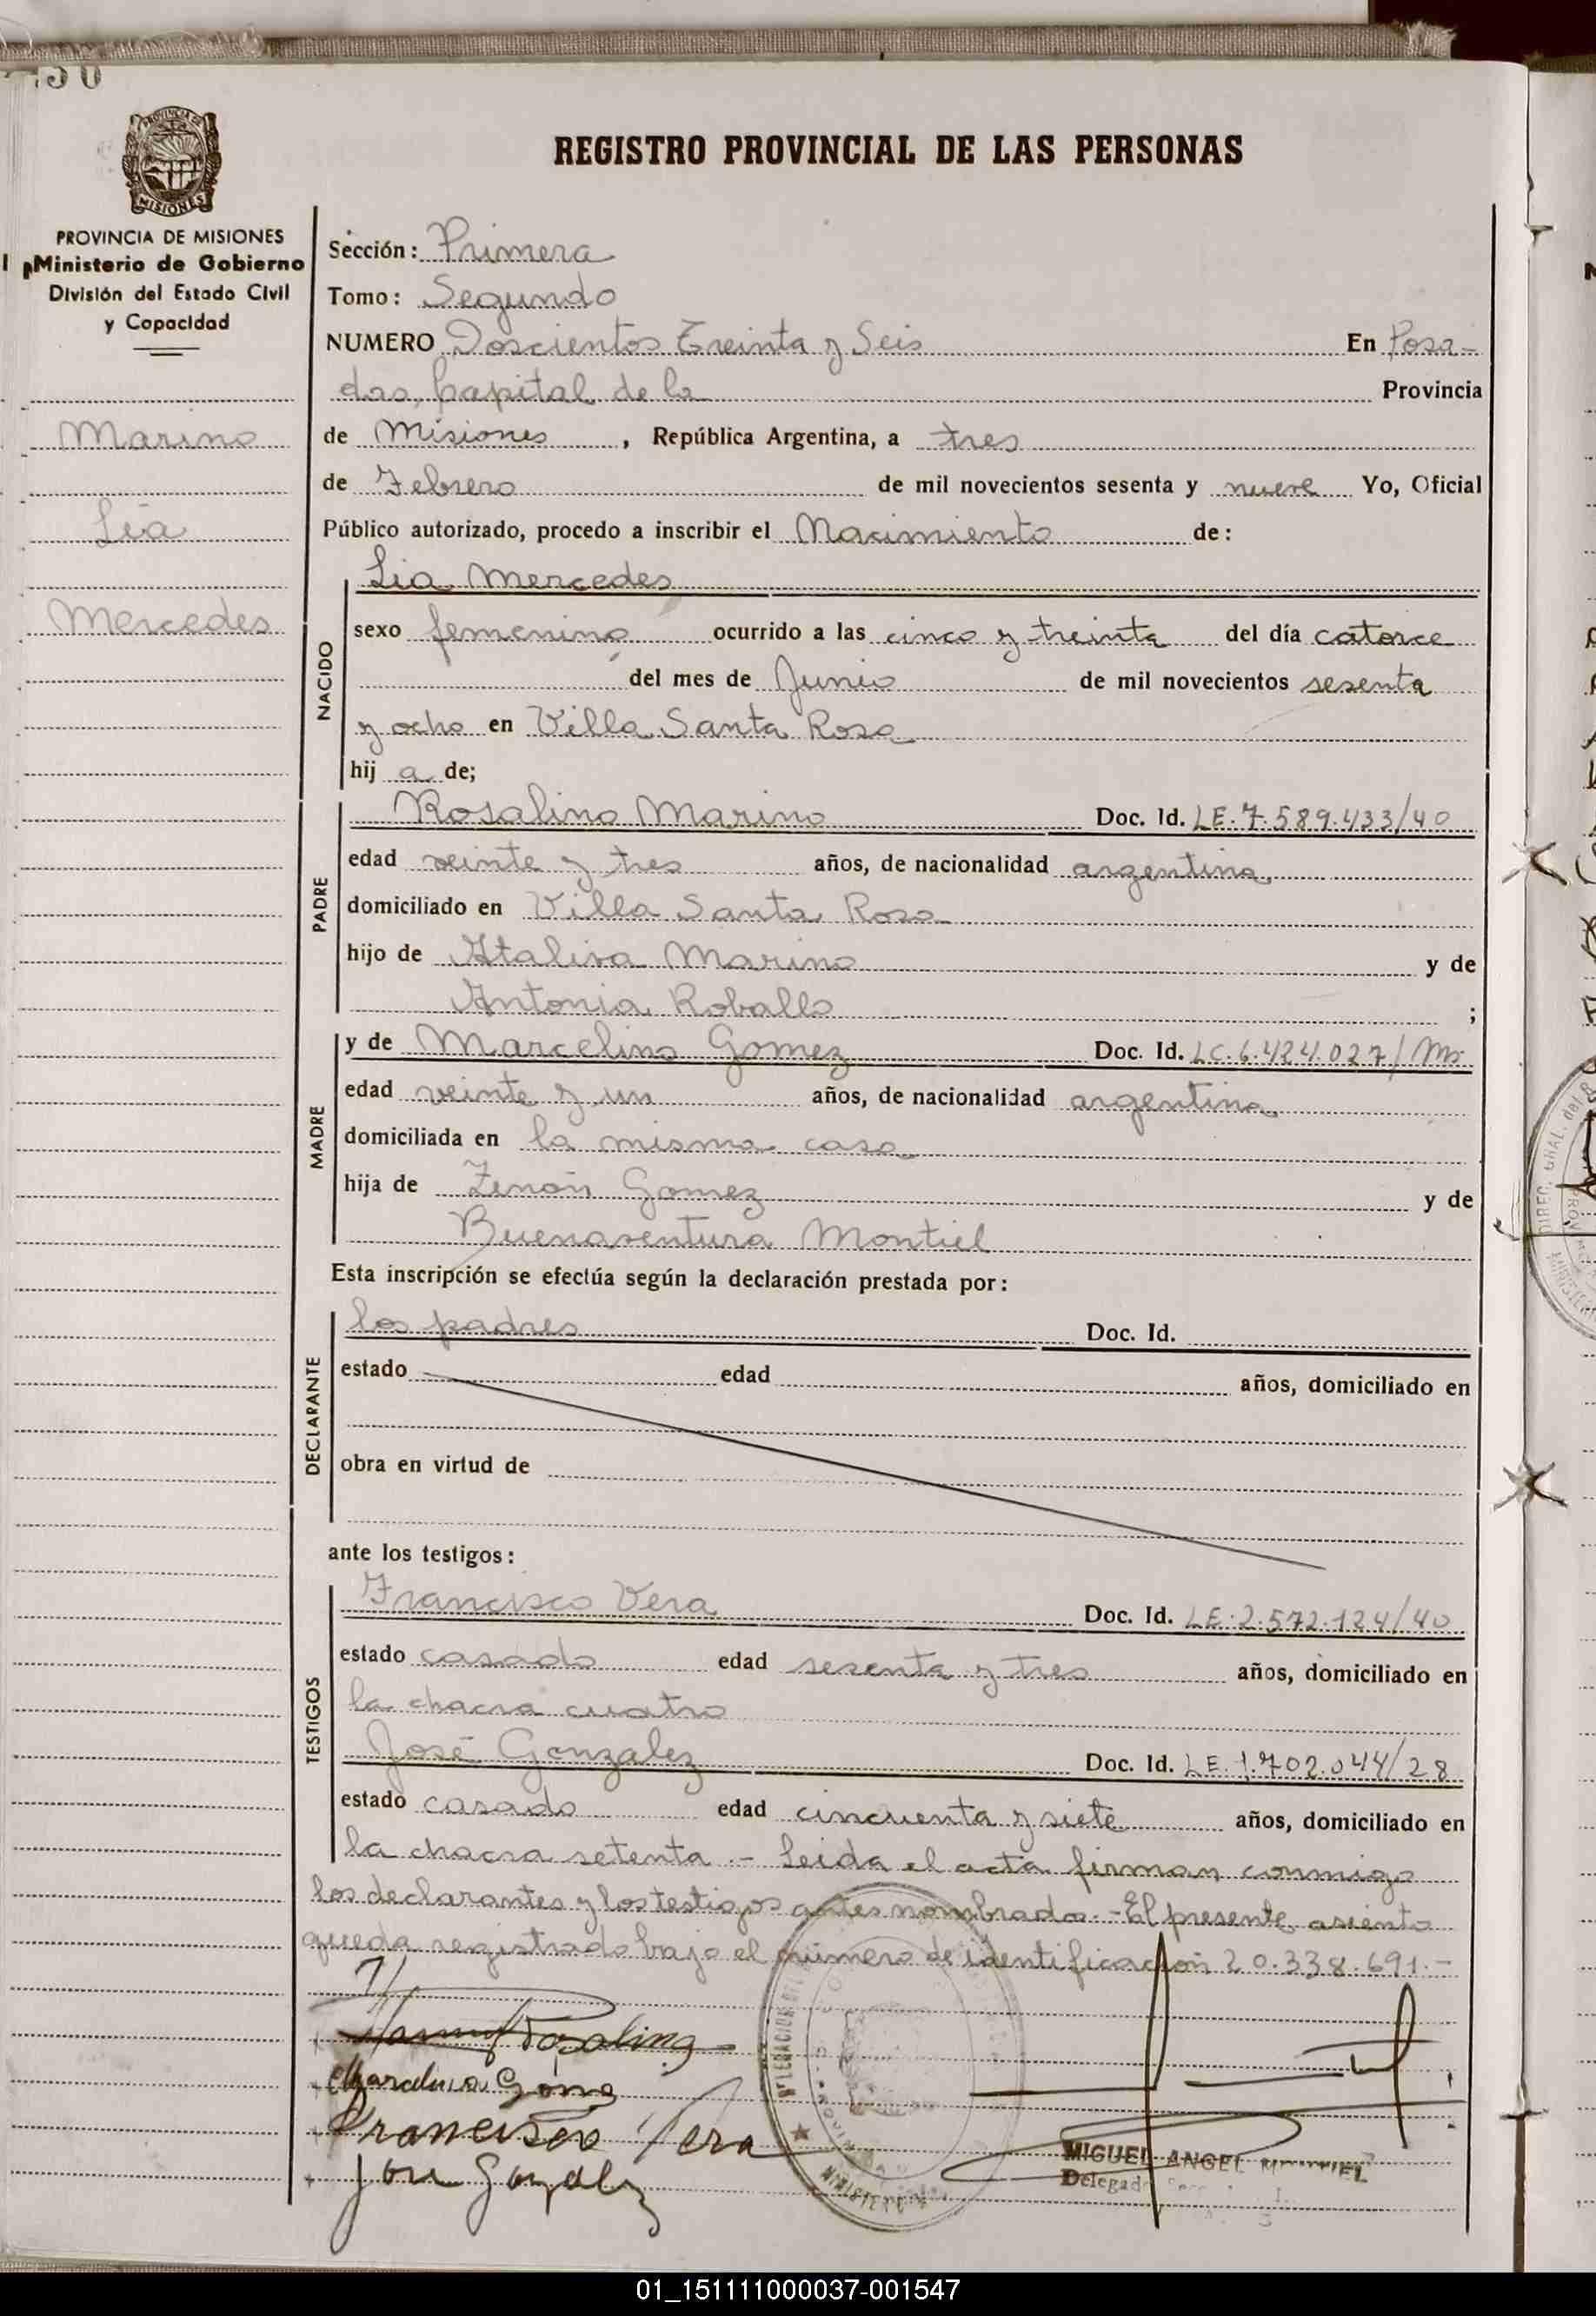 REGISTRO PROVINCIAL DE LAS PERSONAS
MISIONES
PROVINCIA DE MISIONES
Ministerio de Gobierno
División del Estado Civil
y Capacidad
Marino
Lia
Mercedes
Sección: Primera
Tomo: Segundo
NUMERO Doscientos Treinta y Seis En Posa-
das, Capital de la Provincia
de Misiones, República Argentina, a tres
de Febrero de mil novecientos sesenta y nueve Yo, Oficial
Público autorizado, procedo a inscribir el Nacimiento de:
Lia Mercedes
NACIDO
sexo femenino ocurrido a las cinco y treinta del día catorce
del mes de Junio de mil novecientos sesenta
y ocho en Villa Santa Rosa
hij a de;
PADRE
Rosalino Marino Doc. Id. LE. 7.589.433/40
edad veinte y tres años, de nacionalidad argentina
domiciliado en Villa Santa Rosa
hijo de Ataliva Marino y de
Antonia Roballo ;
MADRE
y de Marcelina Gomez Doc. Id. LC. 6.424.027/Ms.
edad veinte y un años, de nacionalidad argentina
domiciliada en la misma casa
hija de Zenón Gomez y de
Buenaventura Montiel
Esta inscripción se efectúa según la declaración prestada por:
DECLARANTE
los padres Doc. Id.
estado edad años, domiciliado en
obra en virtud de
ante los testigos:
TESTIGOS
Francisco Vera Doc. Id. LE. 2.572.124/40
estado casado edad sesenta y tres años, domiciliado en
la chacra cuatro
José Gonzalez Doc. Id. LE. 1.702.044/28
estado casado edad cincuenta y siete años, domiciliado en
la chacra setenta.- Leida el acta firman conmigo
los declarantes y los testigos antes nombrados.- El presente asiento
queda registrado bajo el número de identificación 20.338.691.-
Rosalino
Marcelina Gome
Francisco Vera
MIGUEL ANGEL MONTIEL
Delegado
01_151111000037-001547